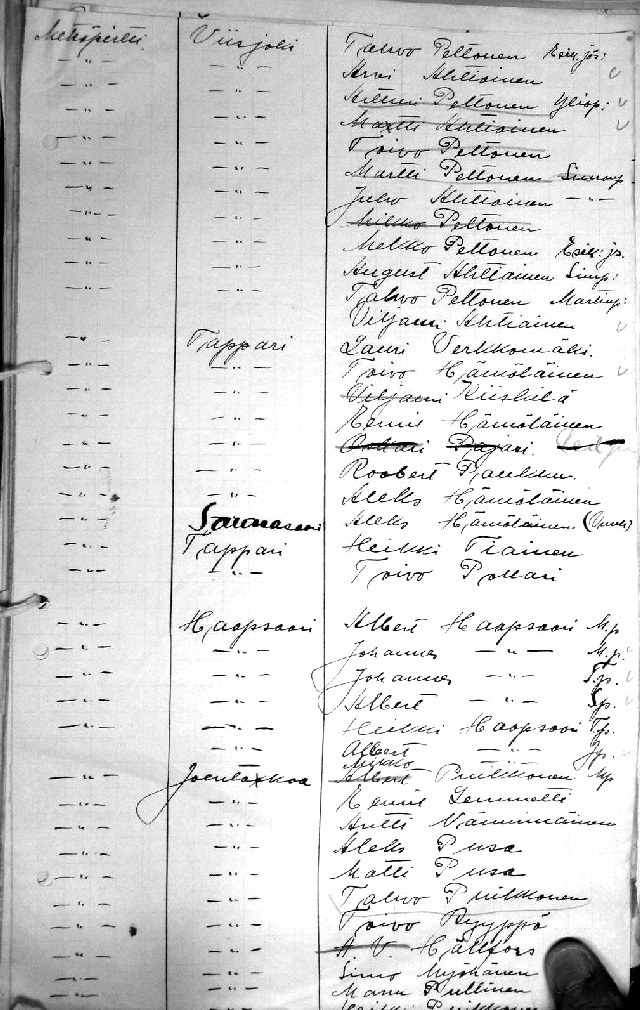 Metsäpirtti. Viisjoki Tahvo Peltonen Esik.jös:
-"- -"- Arvi Ahtiainen
-"- -"- Peltonen Yliop:
-"- -"- Martti Ahtiainen
-"- -"- Toivo Peltonen
-"- -"- Martti Peltonen
-"- -"- Juho Ahtiainen -"-
-"- -"- Mikko Peltonen
-"- -"- Mikko Peltonen Esik. jp.
-"- -"- August Ahtiainen Simp:
-"- -"- Tahvo Peltonen Martinp:
Viljami Ahtiainen
-"- Tappari Lauri Verkkomäki.
-"- -"- Toivo Hämäläinen
-"- -"- Viljami Kiiskilä
-"- -"- Eemis Hämäläinen
-"- -"- Oskari Pajari.
-"- -"- Roobert Paukku.
-"- -"- Aleks Hämäläinen
-"- Aleks Hämäläinen
-"- Tappari Heikki Tiainen
-"- -"- Toivo Pohari
-"- Haapsaari Albert Haapsaari M.p
-"- -"- Johannes -"- M.p.
-"- -"- Johannes -"- T.p.
-"- -"- Albert -"- S.p.
-"- -"- Heikki Haapsaari T.p.
-"- Albert -"- J.p.
Mikko
-"- Joentaakaa Albert Puikkonen M.p
-"- -"- Eemil Lemmetti
-"- -"- Antti Vänninmäinen
-"- -"- Aleks Pusa
-"- -"- Matti Pusa
-"- -"- Tahvo Puikkonen
-"- -"- Toivo Ryyppö
-"- -"- A. V. Hällfors
-"- -"- Simo Myöhänen
-"- -"- Manu Pullinen